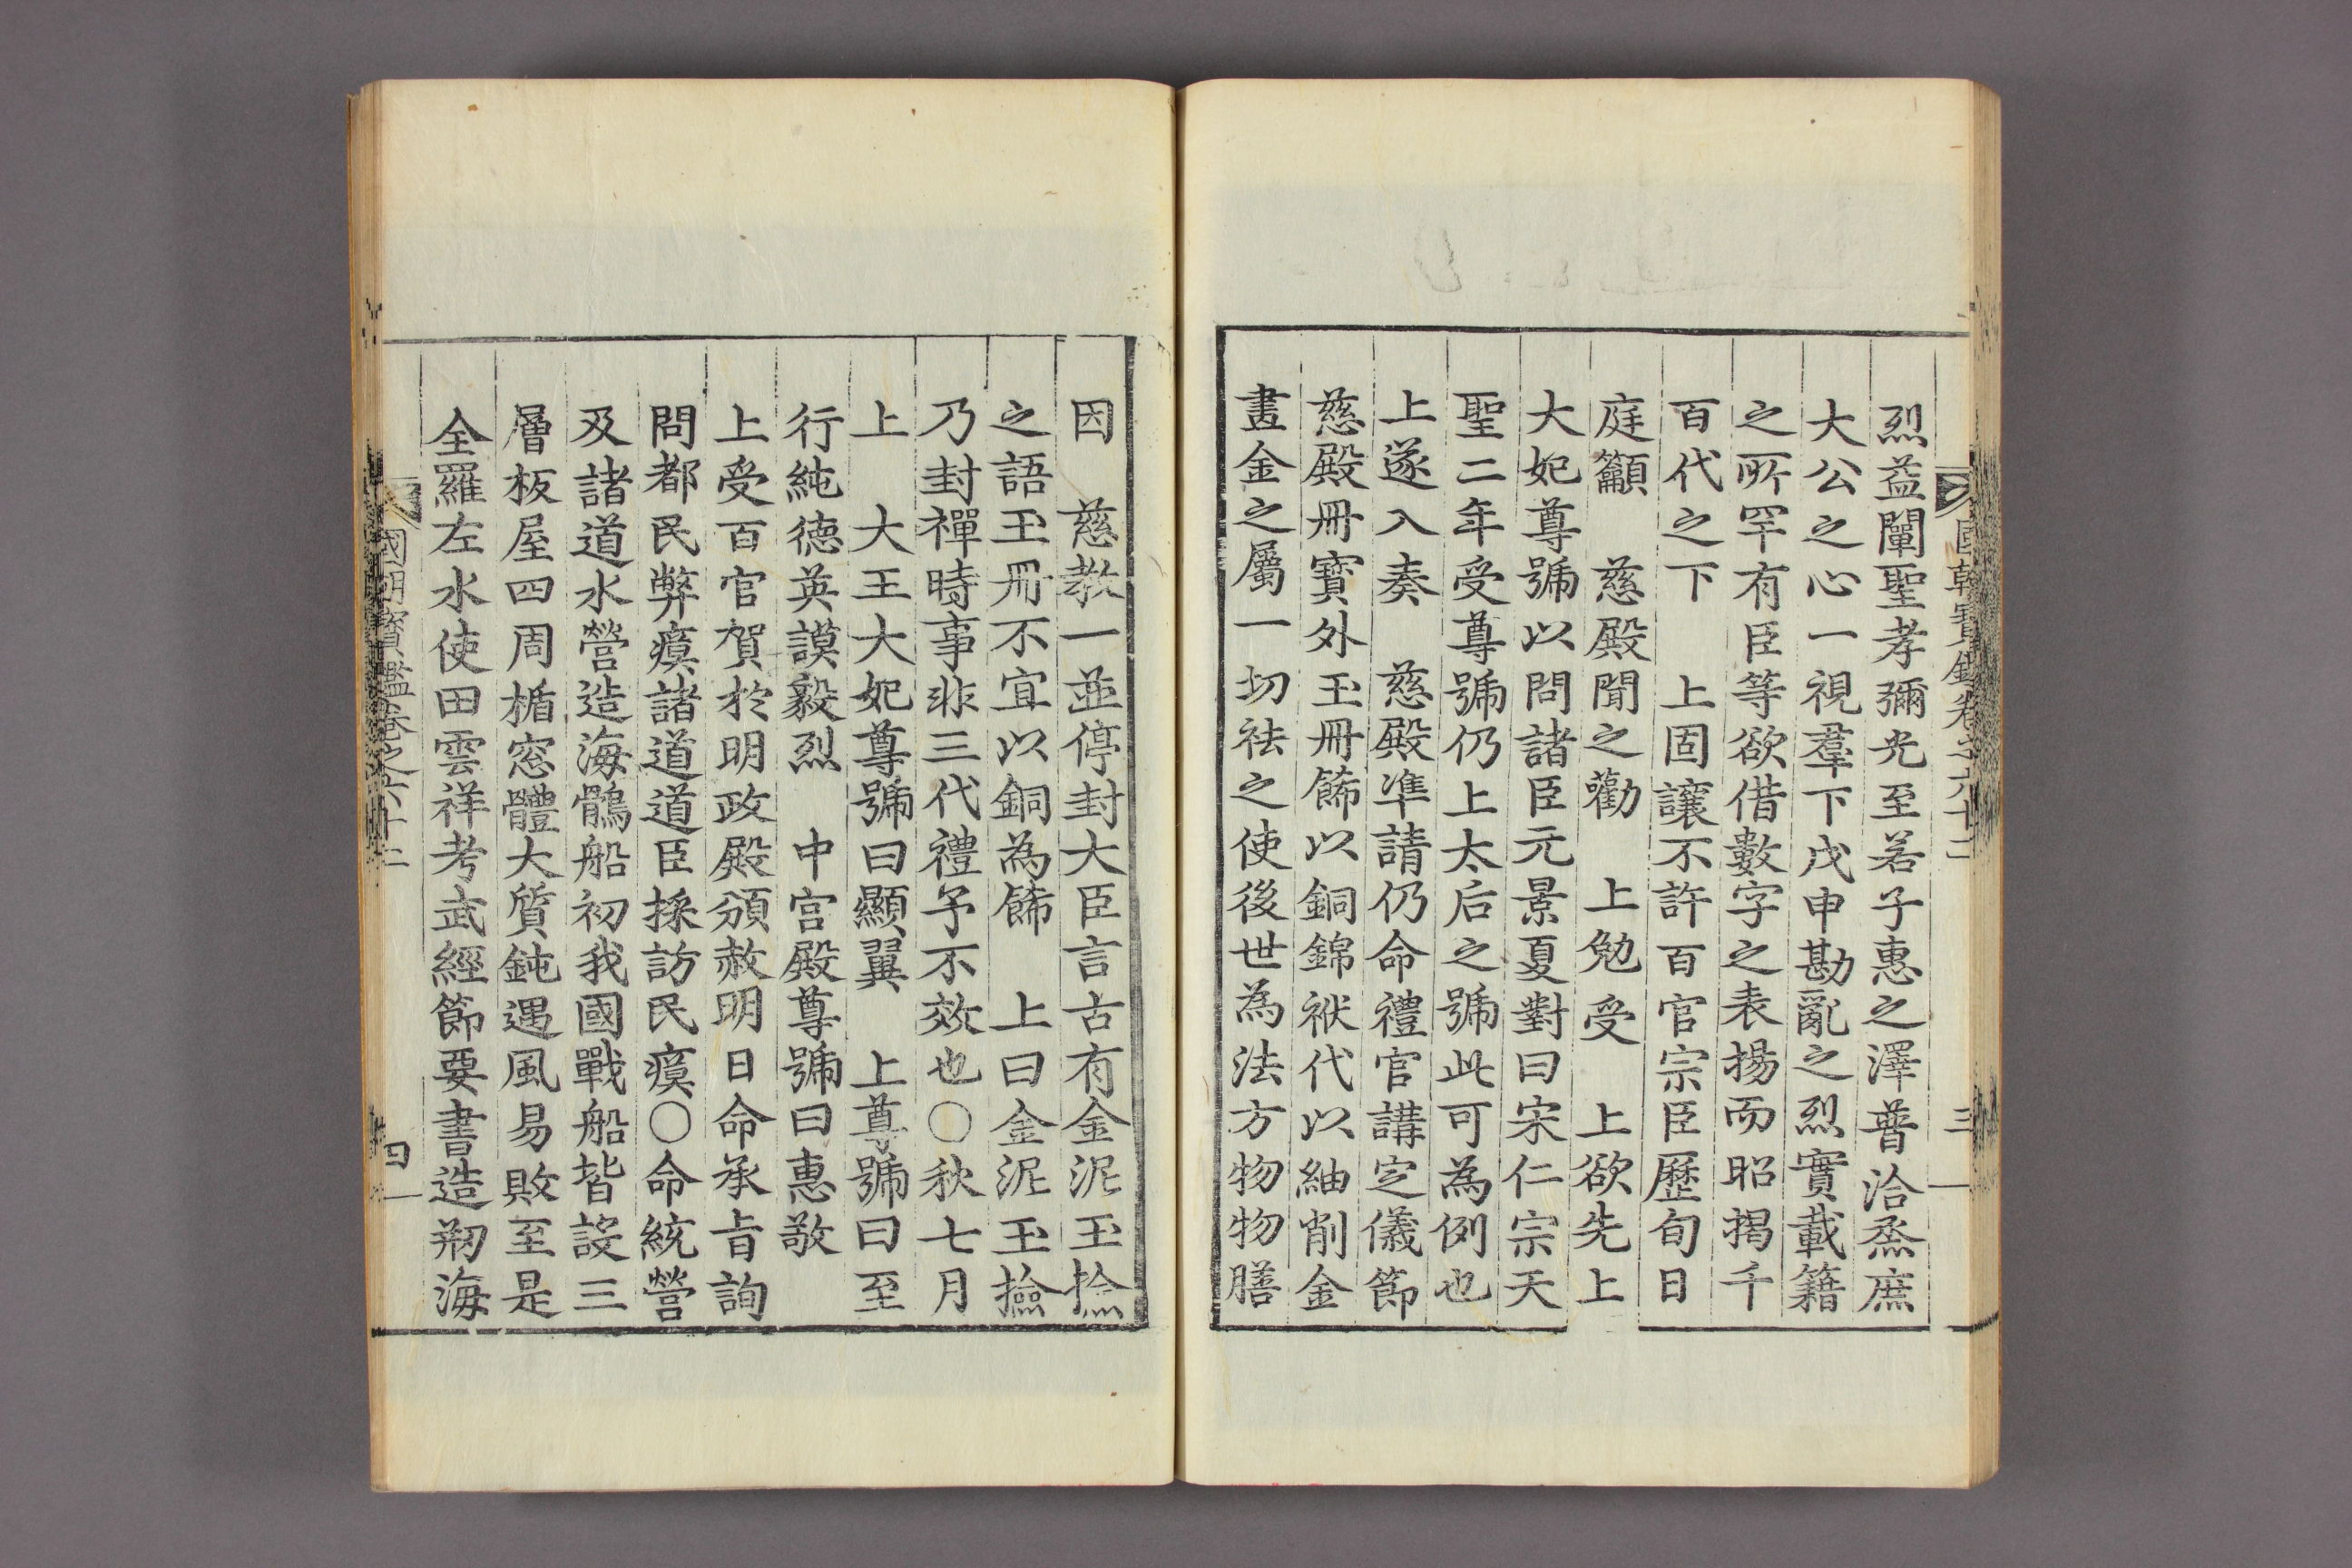 國朝寶鑑卷之六十二
三
烈益闡聖孝彌光至若子惠之澤普洽烝庶
大公之心一視羣下戊申勘亂之烈實載籍
之所罕有臣等欲借數字之表揚而昭揭千
百代之下　上固讓不許百官宗臣歷旬日
庭籲　慈殿聞之勸　上勉受　上欲先上
大妃尊號以問諸臣元景夏對曰宋仁宗天
聖二年受尊號仍上太后之號此可為例也
上遂入奏　慈殿準請仍命禮官講定儀節
慈殿冊寶外玉冊飾以銅錦袱代以紬削金
畫金之屬一切祛之使後世為法方物物膳
因　慈教一並停封大臣言古有金泥玉撿
之語玉冊不宜以銅為飾　上曰金泥玉撿
乃封禪時事非三代禮予不效也○秋七月
上　大王大妃尊號曰顯翼　上尊號曰至
行純德英謨毅烈　中宮殿尊號曰惠敬
上受百官賀於明政殿頒赦明日命承旨詢
問都民弊瘼諸道道臣採訪民瘼○命統營
及諸道水營造海鶻船初我國戰船皆設三
層板屋四周楯窓體大質鈍遇風易敗至是
全羅左水使田雲祥考武經節要書造刱海
國朝寶鑑卷之六十二
四